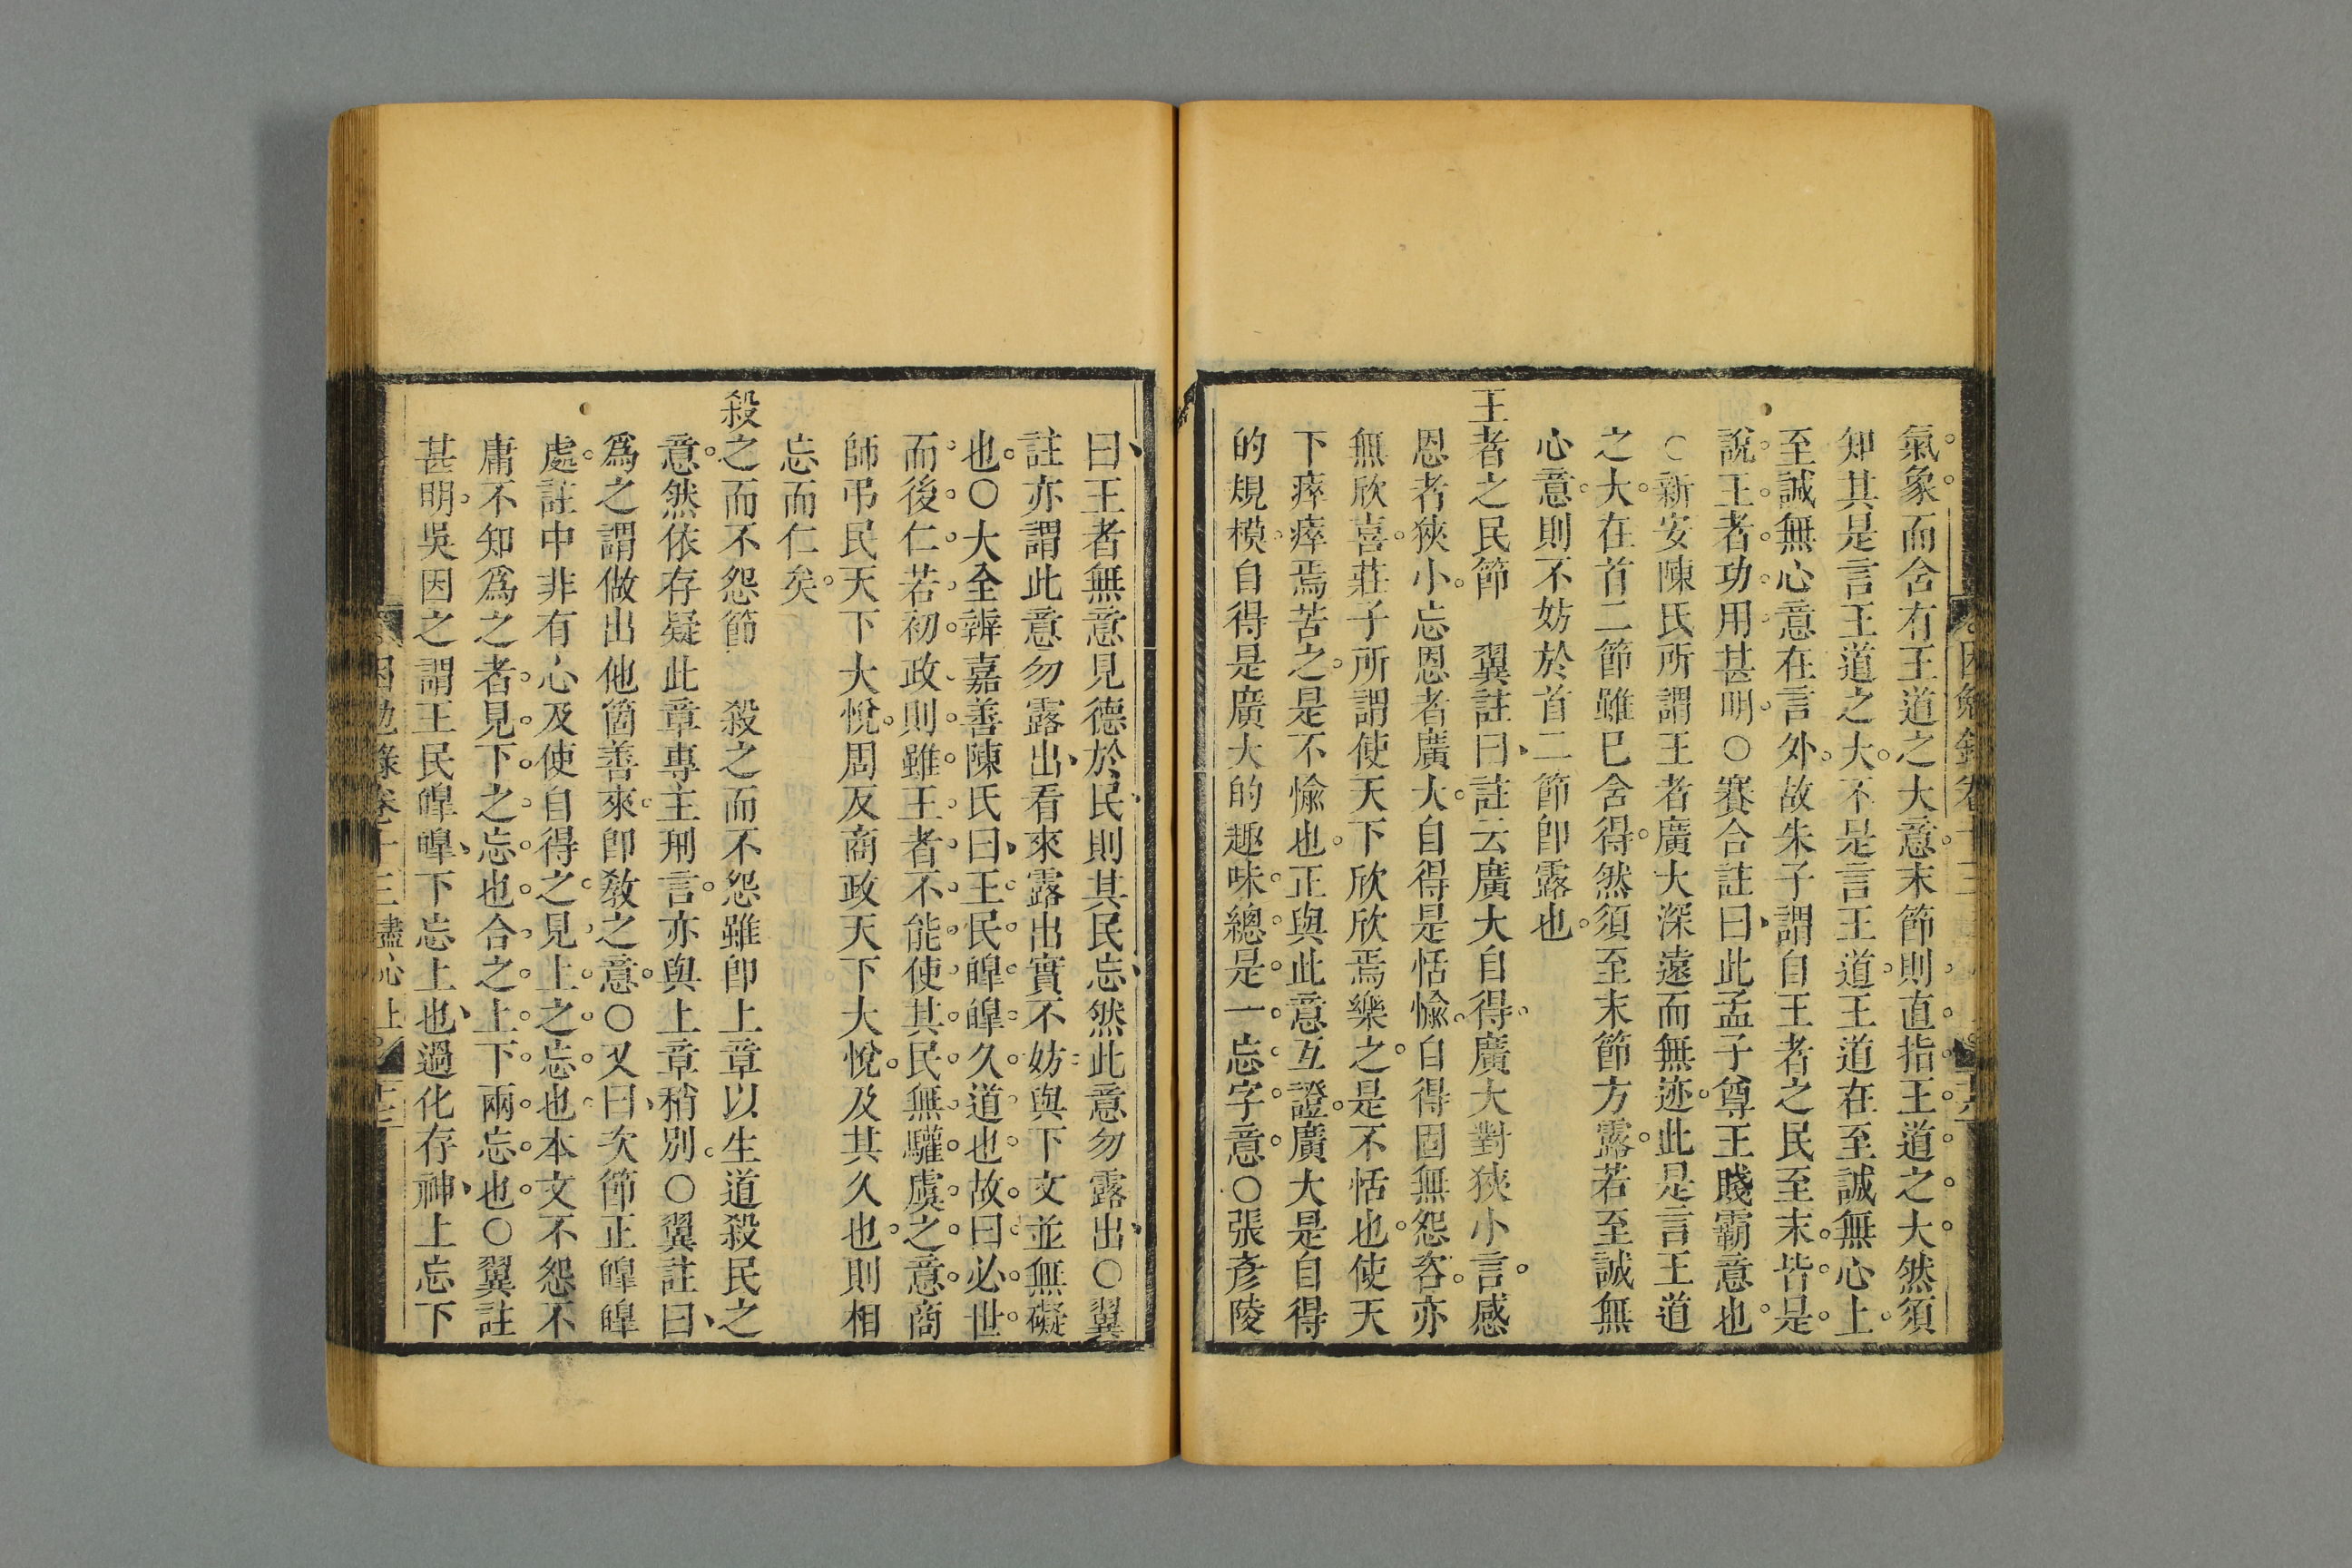 氣象而含有王道之大意末節則直指王道之大然須
知其是言王道之大不是言王道王道在至誠無心上
至誠無心意在言外故朱子謂自王者之民至末皆是
說王者功用甚明○賽合註曰此孟子尊王賤霸意也
○新安陳氏所謂王者廣大深遠而無迹此是言王道
之大在首二節雖已含得然須至末節方露若至誠無
心意則不妨於首二節卽露也
王者之民節　翼註曰註云廣大自得廣大對狹小言感
恩者狹小忘恩者廣大自得是恬愉自得固無怨咨亦
無欣喜莊子所謂使天下欣欣焉樂之是不恬也使天
下瘁瘁焉苦之是不愉也正與此意互證廣大是自得
的規模自得是廣大的趣味總是一忘字意○張彥陵
曰王者無意見德於民則其民忘然此意勿露出○翼
註亦謂此意勿露出看來露出實不妨與下文並無礙
也○大全辨嘉善陳氏曰王民皥皥久道也故曰必世
而後仁若初政則雖王者不能使其民無驩虞之意商
師弔民天下大悅周反商政天下大悅及其久也則相
忘而仁矣
殺之而不怨節　殺之而不怨雖卽上章以生道殺民之
意然依存疑此章專主刑言亦與上章稍別○翼註曰
爲之謂做出他箇善來卽敎之意○又曰次節正皥皥
處註中非有心及使自得之見上之忘也本文不怨不
庸不知爲之者見下之忘也合之上下兩忘也○翼註
甚明吳因之謂王民皥皥下忘上也過化存神上忘下
因勉錄卷十三盡心上